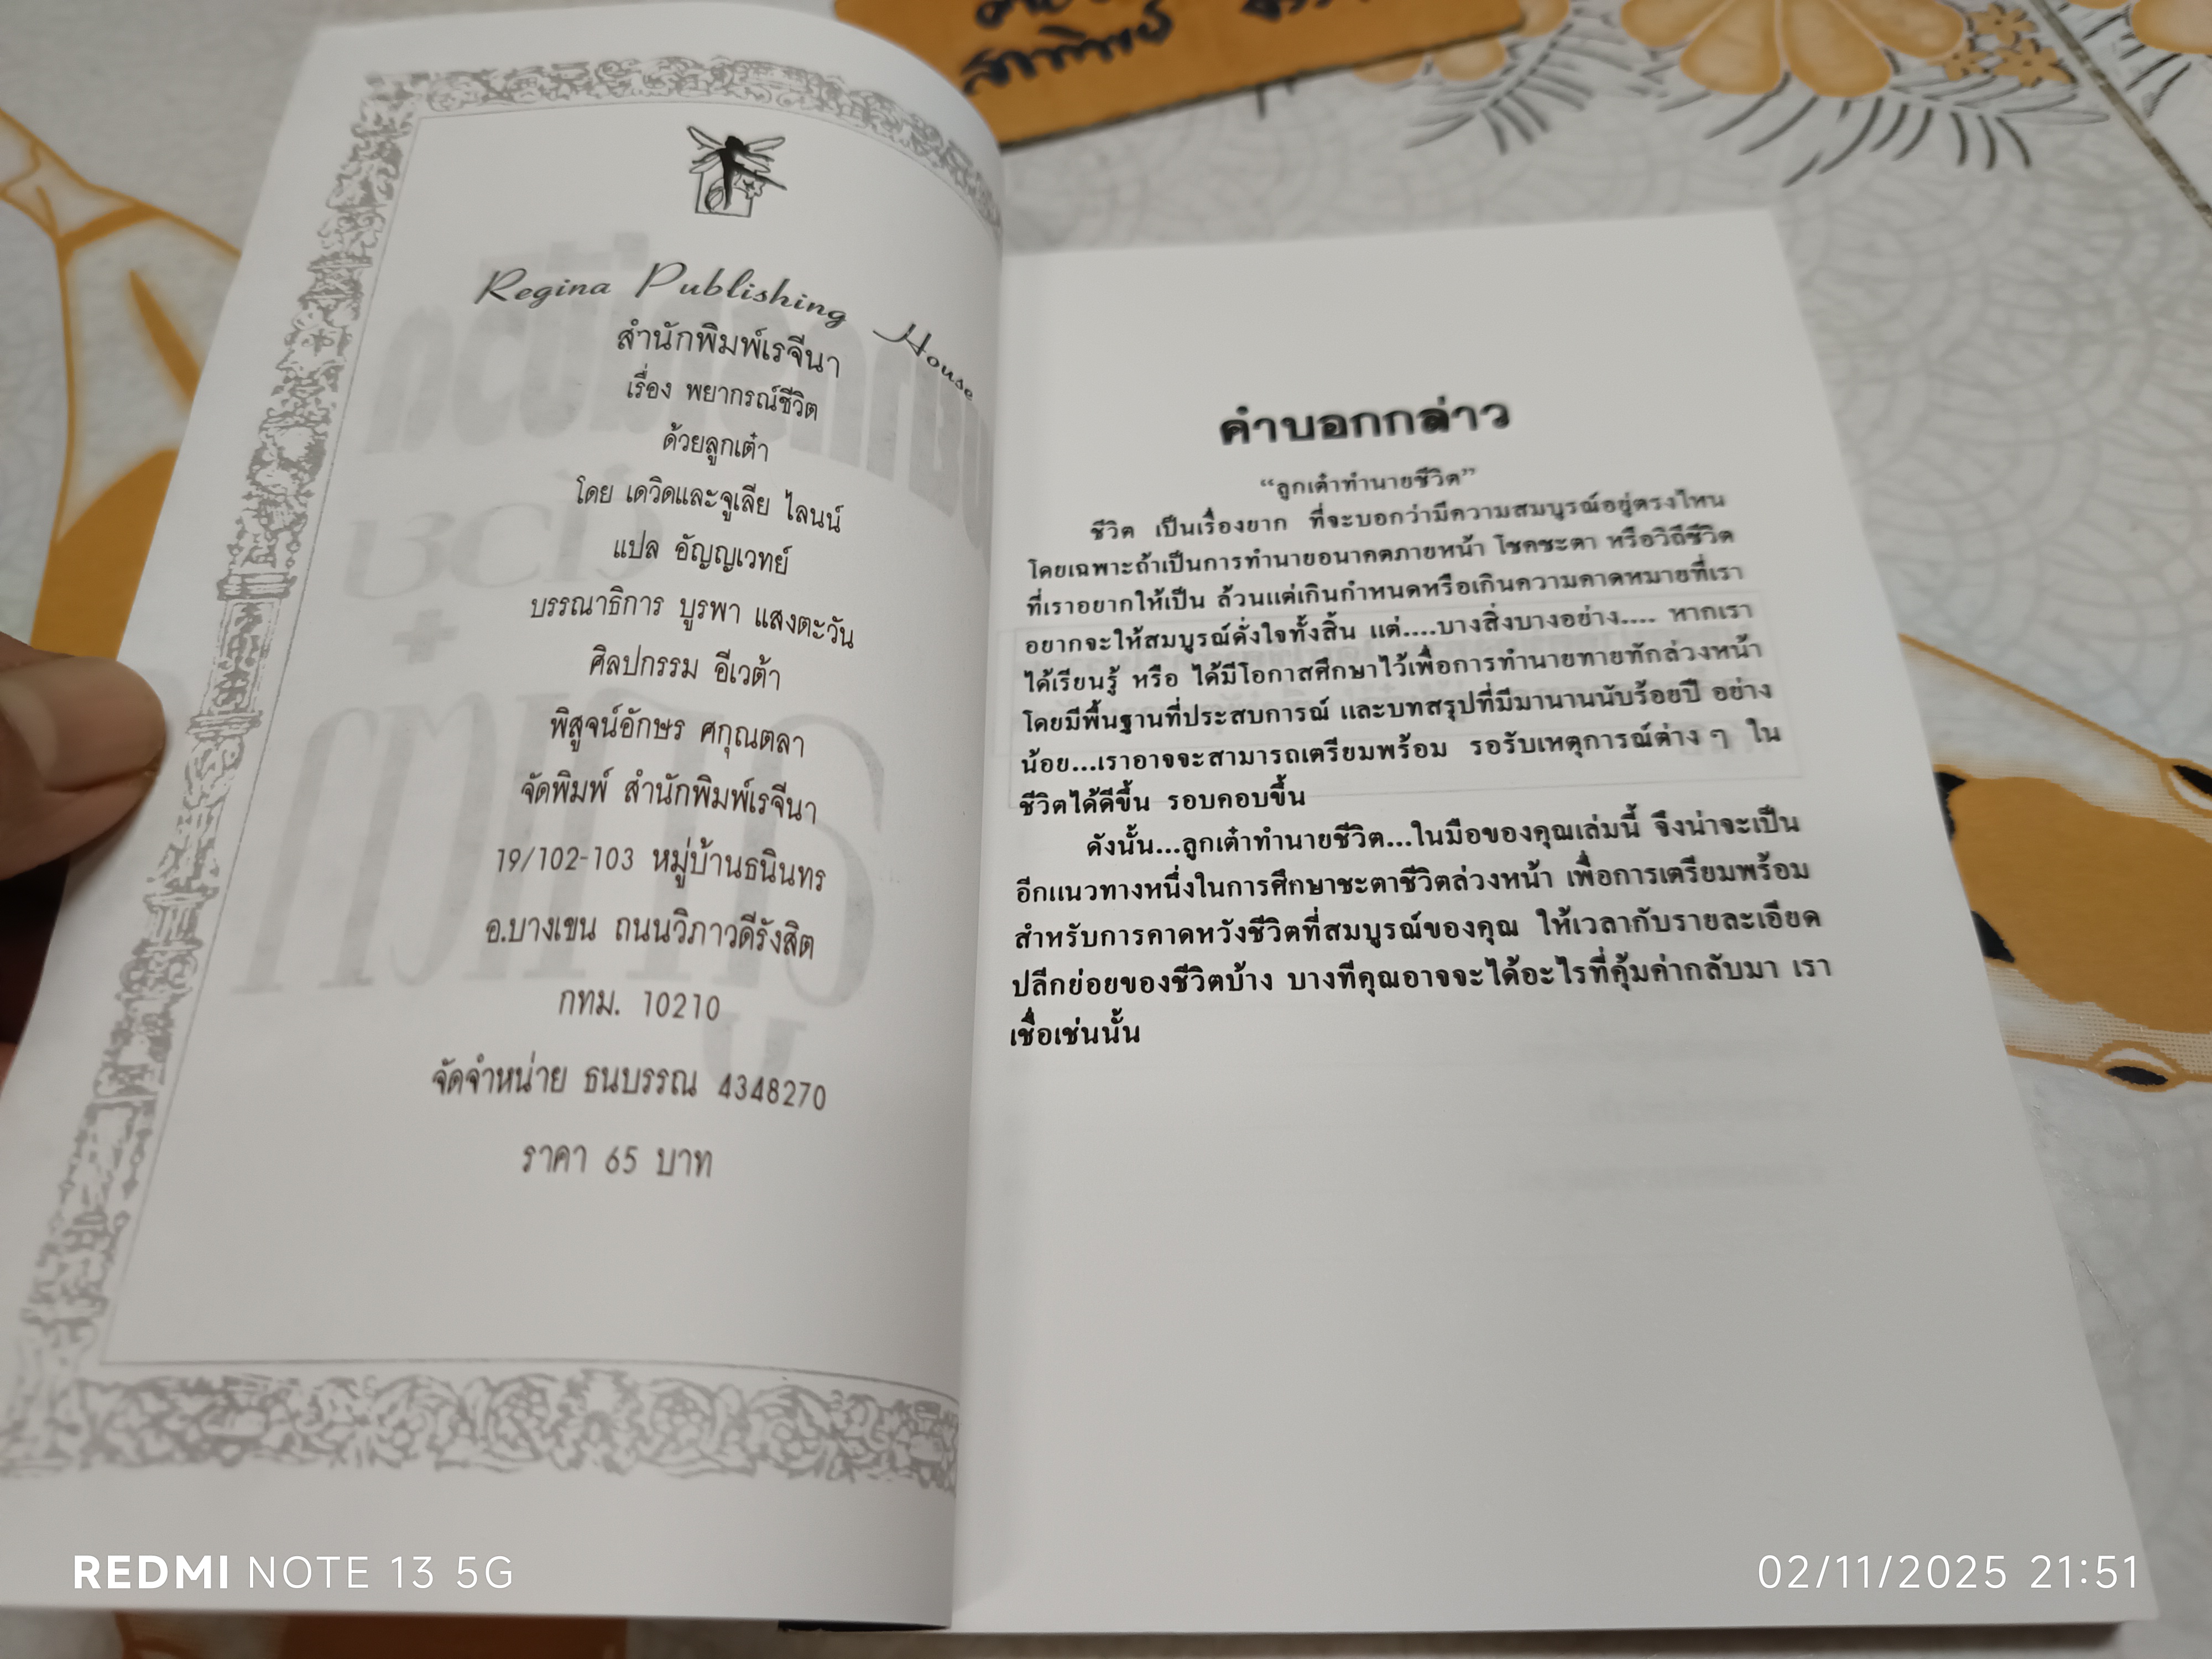 สาทิพย์
Regina Publishing House
สำนักพิมพ์เรจีนา
เรื่อง พยากรณ์ชีวิต
ด้วยลูกเต๋า
โดย เดวิดและจูเลีย ไลนน์
แปล อัญญเวทย์
บรรณาธิการ บูรพา แสงตะวัน
ศิลปกรรม อีเวต้า
พิสูจน์อักษร ศกุณตลา
จัดพิมพ์ สำนักพิมพ์เรจีนา
19/102-103 หมู่บ้านธนินทร
อ.บางเขน ถนนวิภาวดีรังสิต
กทม. 10210
จัดจำหน่าย ธนบรรณ 4348270
ราคา 65 บาท
คำบอกกล่าว
“ลูกเต๋าทำนายชีวิต”
ชีวิต เป็นเรื่องยาก ที่จะบอกว่ามีความสมบูรณ์อยู่ตรงไหน
โดยเฉพาะถ้าเป็นการทำนายอนาคตภายหน้า โชคชะตา หรือวิถีชีวิต
ที่เราอยากให้เป็น ล้วนแต่เกินกำหนดหรือเกินความคาดหมายที่เรา
อยากจะให้สมบูรณ์ดั่งใจทั้งสิ้น แต่....บางสิ่งบางอย่าง.... หากเรา
ได้เรียนรู้ หรือ ได้มีโอกาสศึกษาไว้เพื่อการทำนายทายทักล่วงหน้า
โดยมีพื้นฐานที่ประสบการณ์ และบทสรุปที่มีมานานนับร้อยปี อย่าง
น้อย...เราอาจจะสามารถเตรียมพร้อม รอรับเหตุการณ์ต่าง ๆ ใน
ชีวิตได้ดีขึ้น รอบคอบขึ้น
ดังนั้น...ลูกเต๋าทำนายชีวิต...ในมือของคุณเล่มนี้ จึงน่าจะเป็น
อีกแนวทางหนึ่งในการศึกษาชะตาชีวิตล่วงหน้า เพื่อการเตรียมพร้อม
สำหรับการคาดหวังชีวิตที่สมบูรณ์ของคุณ ให้เวลากับรายละเอียด
ปลีกย่อยของชีวิตบ้าง บางทีคุณอาจจะได้อะไรที่คุ้มค่ากลับมา เรา
เชื่อเช่นนั้น
REDMI NOTE 13 5G
02/11/2025 21:51